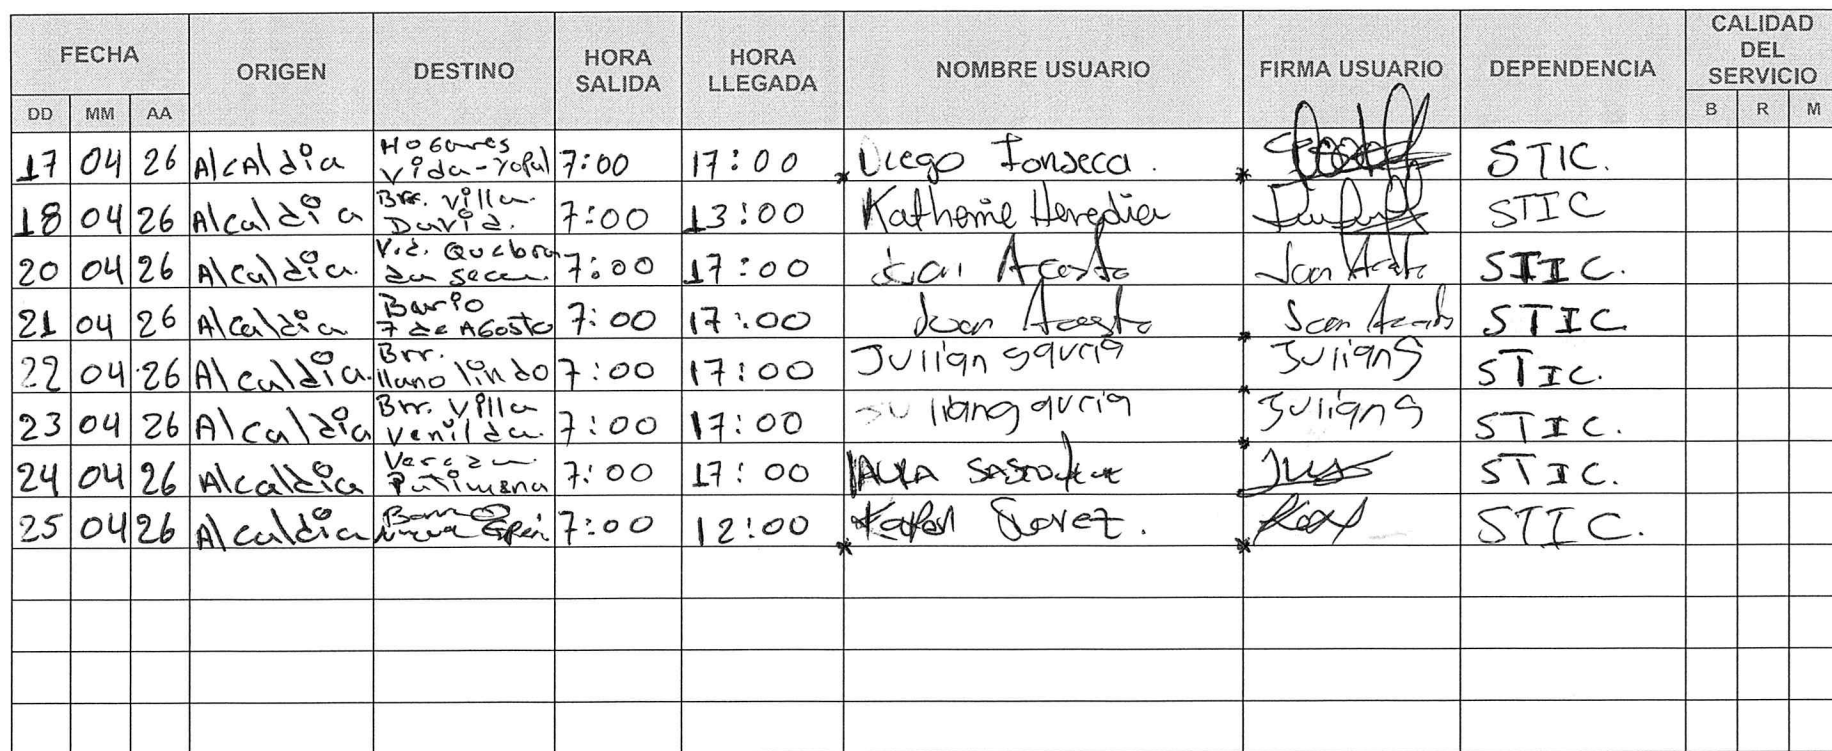 FECHA ORIGEN DESTINO HORA SALIDA HORA LLEGADA NOMBRE USUARIO FIRMA USUARIO DEPENDENCIA CALIDAD DEL SERVICIO
DD MM AA B R M
17 04 26 Alcaldia Hogares Vida-Yopal 7:00 17:00 Diego Fonseca. STIC.
18 04 26 Alcaldia Brr. Villa David. 7:00 13:00 Katherine Heredia STIC
20 04 26 Alcaldia. V.d. Quebra da seca. 7:00 17:00 Acosta Joan Acosta STIC.
21 04 26 Alcaldia Barrio 7 de Agosto 7:00 17:00 Joan Acosta Joan Acosta STIC
22 04 26 Alcaldia. Brr. llano lindo 7:00 17:00 Julian gavria Julian g STIC.
23 04 26 Alcaldia Brr. Villa Venilda. 7:00 17:00 Julian gavria Julian g STIC.
24 04 26 Alcaldia Vereda Patimena 7:00 17:00 PAULA STIC.
25 04 26 Alcaldia Barrio 7:00 12:00 STIC.